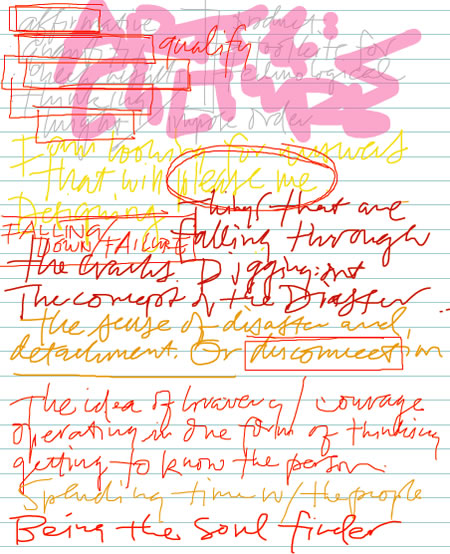 affirmative product
qualify for
technological
thinking
might order
I am looking for answers
that will please me
Designing things that are
FALLING DOWN/FAILURE falling through
the cracks Digging into
The concept of the Disaster
the sense of disaster and
detachment. Or disconnection
The idea of bravery / courage
operating in one form of thinking
getting to know the person.
Spending time w/ the people
Being the Soul finder